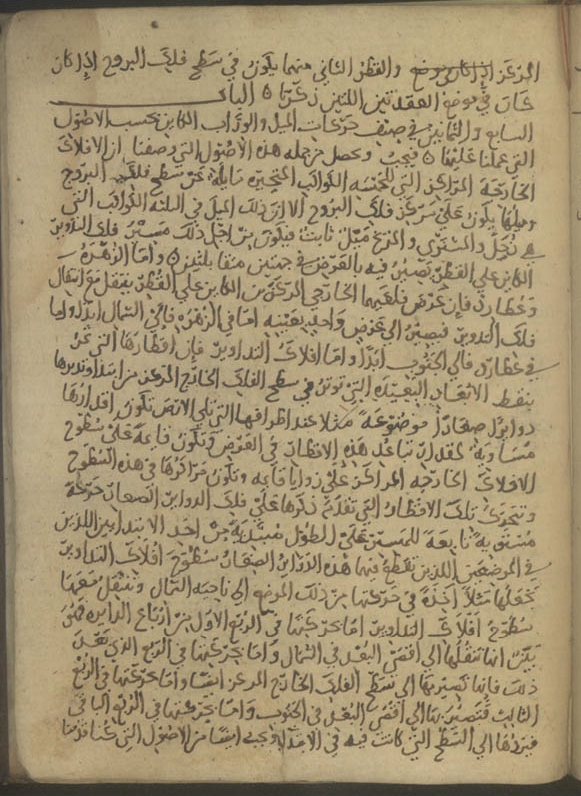 المركز والقطر الثاني منهما يكون في سطح فلك البروج اذا كان
في موضع العقدتين اللتين ذكرنا الباب
السابع والثمانين في صنف حركات الميل والوراب الكاين بحسب الاصول
التي عملنا عليها فيجب وتحصل من جمله هذه الاصول التي وصفنا ان الافلاك
الخارجة المراكز التي للخمسه الكواكب المتحيره مايلة عن سطح فلك البروج
وميلها يكون على مركز فلك البروج الا ان ذلك الميل في الثلثه الكواكب التي
هي زحل والمشترى والمريخ ميل ثابت فيكون من اجل ذلك مسير فلك التدوير
الكاين على القطر بصير فيه بالعرض في جهتين متقابلتين واما الزهرة
وعطارد فان عرض فلكيهما الخارجي المركزين الكاين على القطر ينتقل مع انتقال
فلك التدوير فيصير الى عرض واحد بعينه اما في الزهرة فالى الشمال ابدا واما
في عطارد فالى الجنوب ابدا واما افلاك التداوير فان اقطارها التي تمر
بنقط الابعاد البعيدة التي توثر في سطح الفلك الخارج المركز من ابتدا ما تديرها
دواير صغار موضوعة مثلا عند اطرافها التي تلي الارض تكون اقدارها
مساوية لمقدار تباعد هذه الاقطار في العرض وتكون قايمة على سطوح
الافلاك الخارجه المراكز على زوايا قايمه وتكون مراكزها في هذه السطوح
وتتحرك تلك الاقطار التي تقدم ذكرها على فلك الدواير الصغار حركة
مستويه تابعة للمسير في الطول مبتدية من احد الابتدايين اللذين
في الموضعين اللذين تقطع فيهما هذه الدواير الصغار سطوح افلاك التداوير
نجعلها مثلا اخذة في حركتها من ذلك الموضع الى ناحيه الشمال وتنتقل معها
سطوح افلاك التداوير اما بحركتها في الربع الاول من ارباع الدايره فهو
بين انها تنقلها الى اقصى البعد في الشمال واما بحركتها في الربع الذي بعد
ذلك فانها تصير بها الى سطح الفلك الخارج المركز ايضا واما بحركتها في الربع
الثالث فتصير بها الى اقصى البعد في الجنوب واما بحركتها في الربع الباقي
فيردها الى السطح التي كانت فيه في الابتدا ويجب ايضا من الاصول التي كنا قدمنا